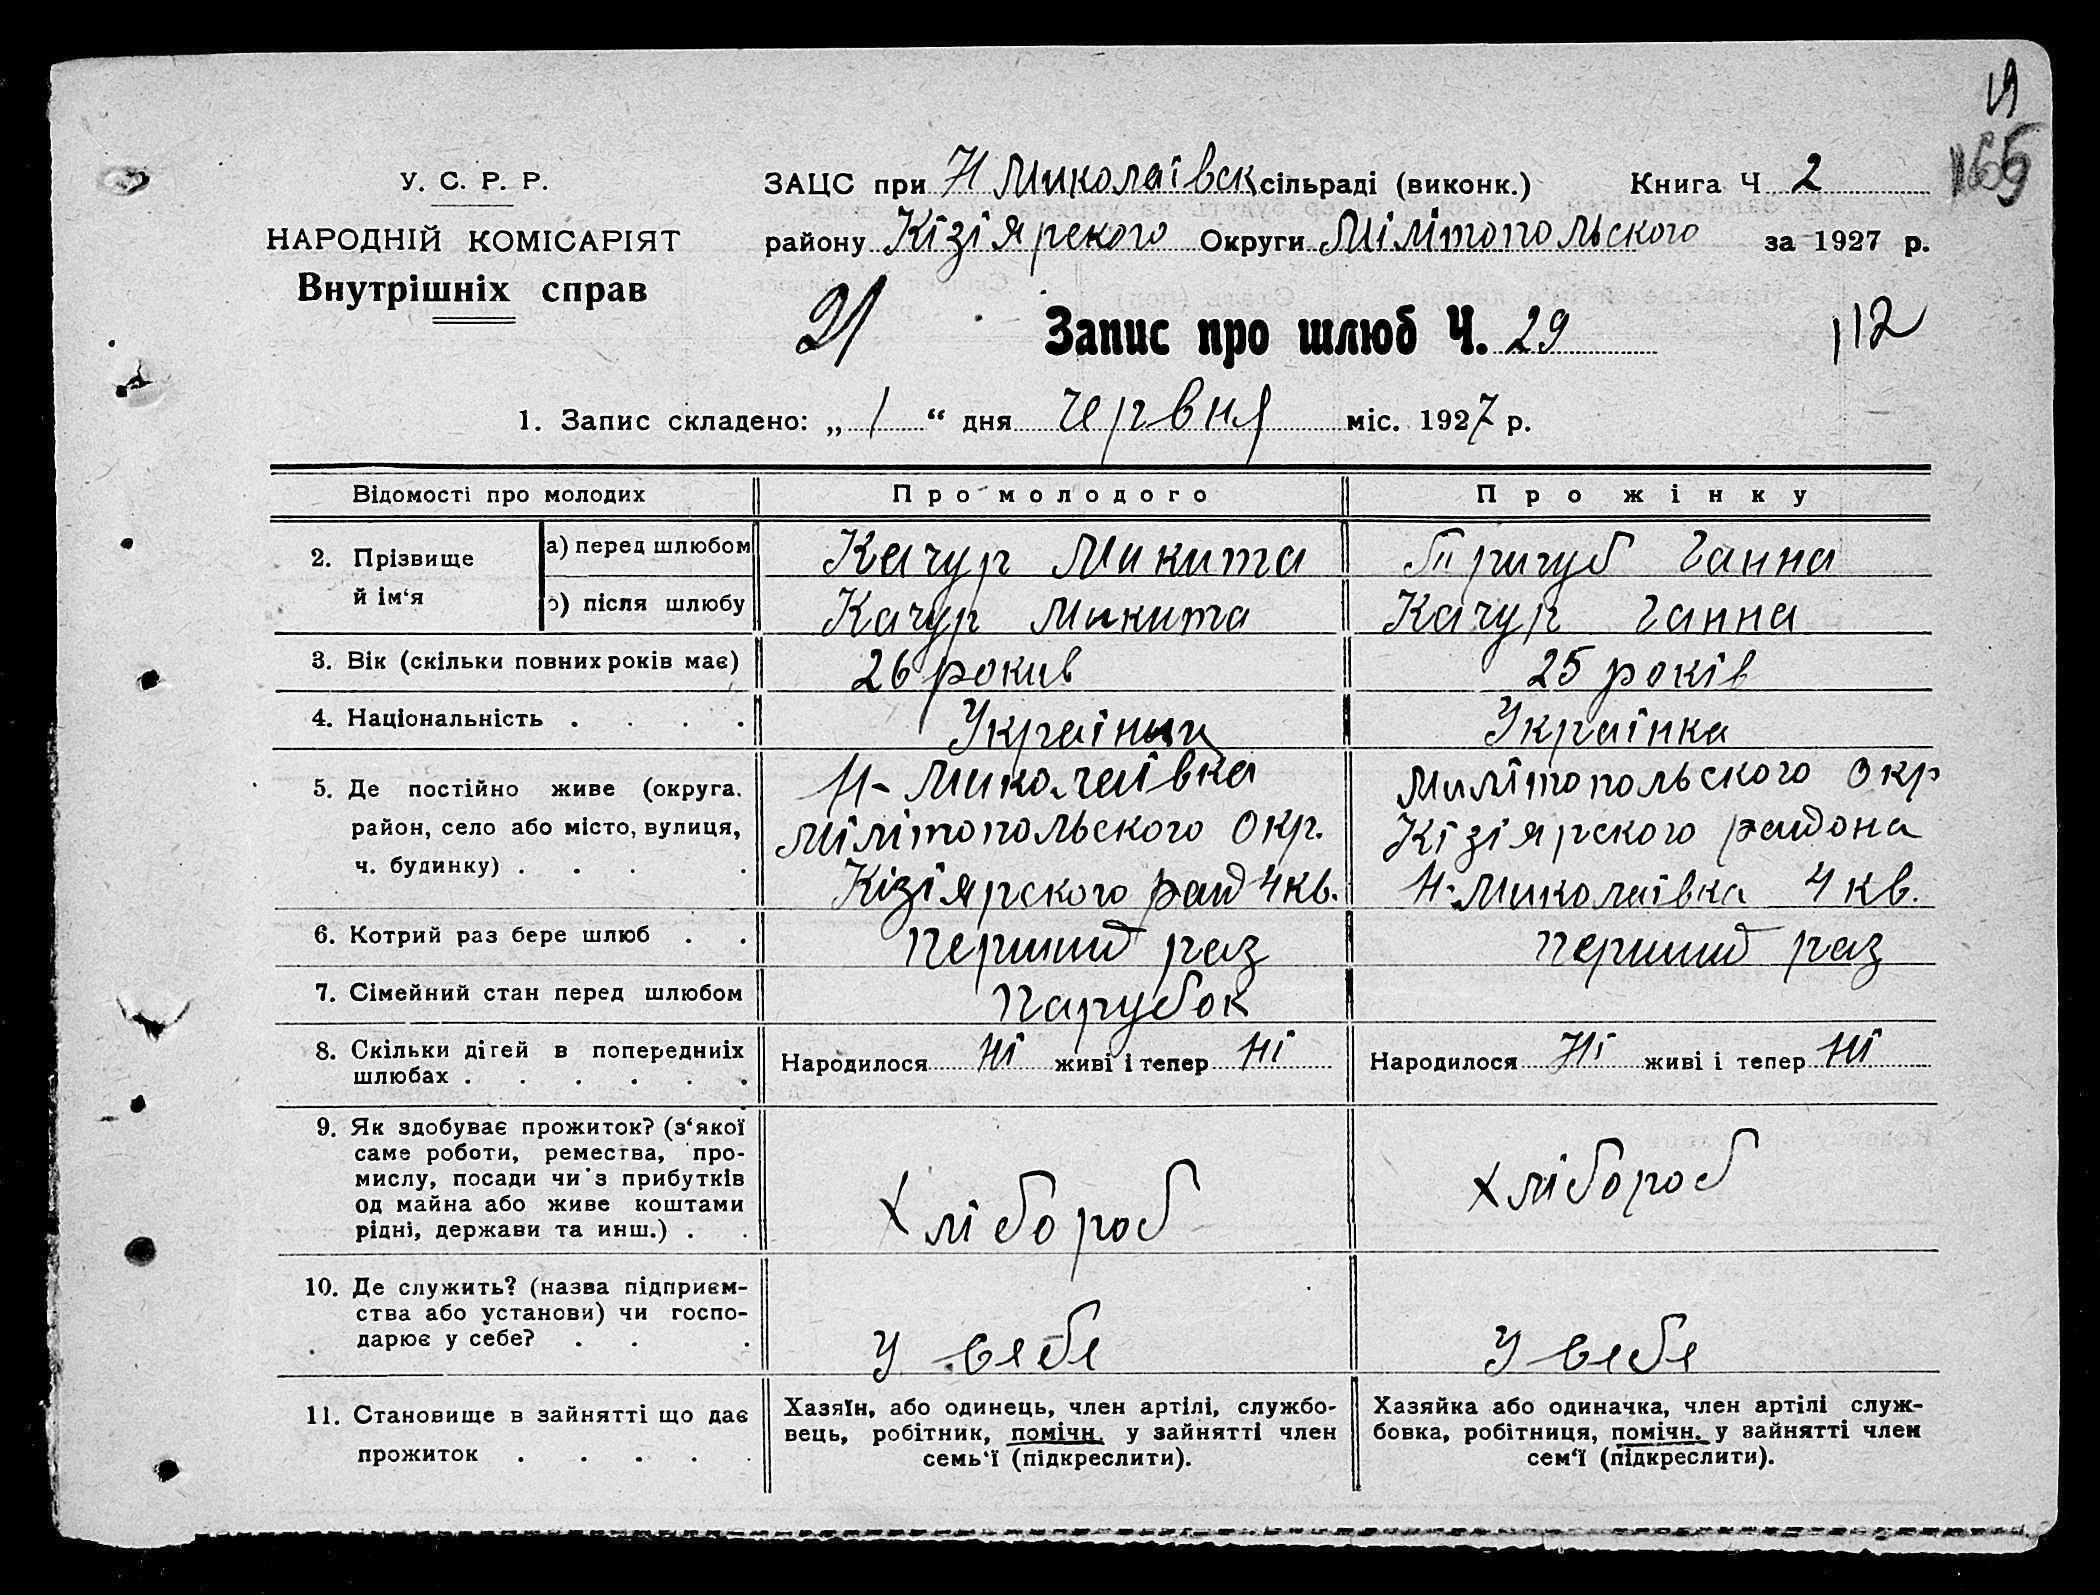 19
165
У. С. Р. Р.
НАРОДНІЙ КОМІСАРІЯТ
Внутрішніх справ
ЗАЦС при Н Миколаївск сільраді (виконк.) Книга Ч 2
району Кізіярского Округи Мілітопольского за 1927 р.
21 Запис про шлюб Ч. 29 112
1. Запис складено: „ 1 “ дня червня міс. 1927 р.
Відомості про молодих Про молодого Про жінку
2. Прізвище й ім‘я а) перед шлюбом Качур Микита Тригуб Ганна
б) після шлюбу Качур Микита Качур Ганна
3. Вік (скільки повних років має) 26 рокив 25 років
4. Національність . . . . Українц Українка
5. Де постійно живе (округа, Н-Миколаївка Милітопольского окр
район, село або місто, вулиця, Мілітопольского окр. Кізіярского района
ч. будинку) . . . . Кізіярского рай 4 кв. Н-Миколаївка 4 кв.
6. Котрий раз бере шлюб . . Перший раз Перший раз
7. Сімейний стан перед шлюбом Парубок
8. Скільки дітей в попередниіх Народилося Ні живі і тепер Ні Народилося Ні живі і тепер Ні
шлюбах . . . . . .
9. Як здобуває прожиток? (з‘якої
саме роботи, ремества, про-
мислу, посади чи з прибутків
од майна або живе коштами
рідні, держави та инш.) . . Хлібороб Хлібороб
10. Де служить? (назва підприєм-
ства або установи) чи госпо-
дарює у себе? . . . У себе У себе
11. Становище в зайнятті що дає
прожиток . . . . .
Хазяїн, або одинець, член артілі, службо-
вець, робітник, помічн. у зайнятті член
семь‘ї (підкреслити).
Хазяйка або одиначка, член артілі служ-
бовка, робітниця, помічн. у зайнятті член
сем‘ї (підкреслити).